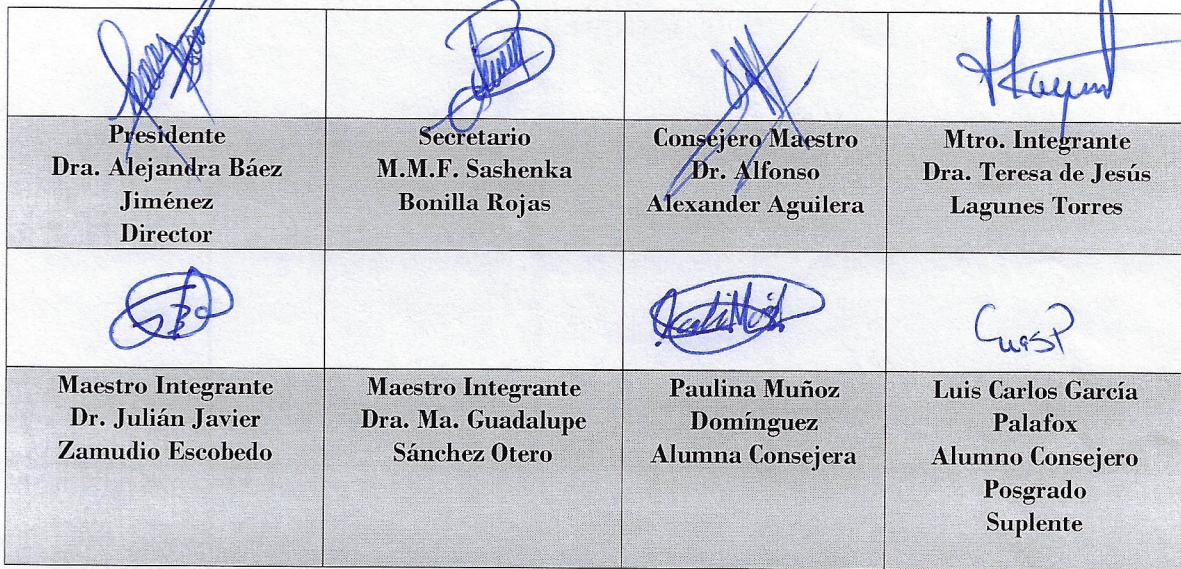 Presidente
Dra. Alejandra Báez
Jiménez
Director
Secretario
M.M.F. Sashenka
Bonilla Rojas
Consejero Maestro
Dr. Alfonso
Alexander Aguilera
Mtro. Integrante
Dra. Teresa de Jesús
Lagunes Torres
Maestro Integrante
Dr. Julián Javier
Zamudio Escobedo
Maestro Integrante
Dra. Ma. Guadalupe
Sánchez Otero
Paulina Muñoz
Domínguez
Alumna Consejera
Luis Carlos García
Palafox
Alumno Consejero
Posgrado
Suplente